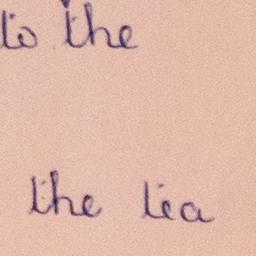 to the
the tea